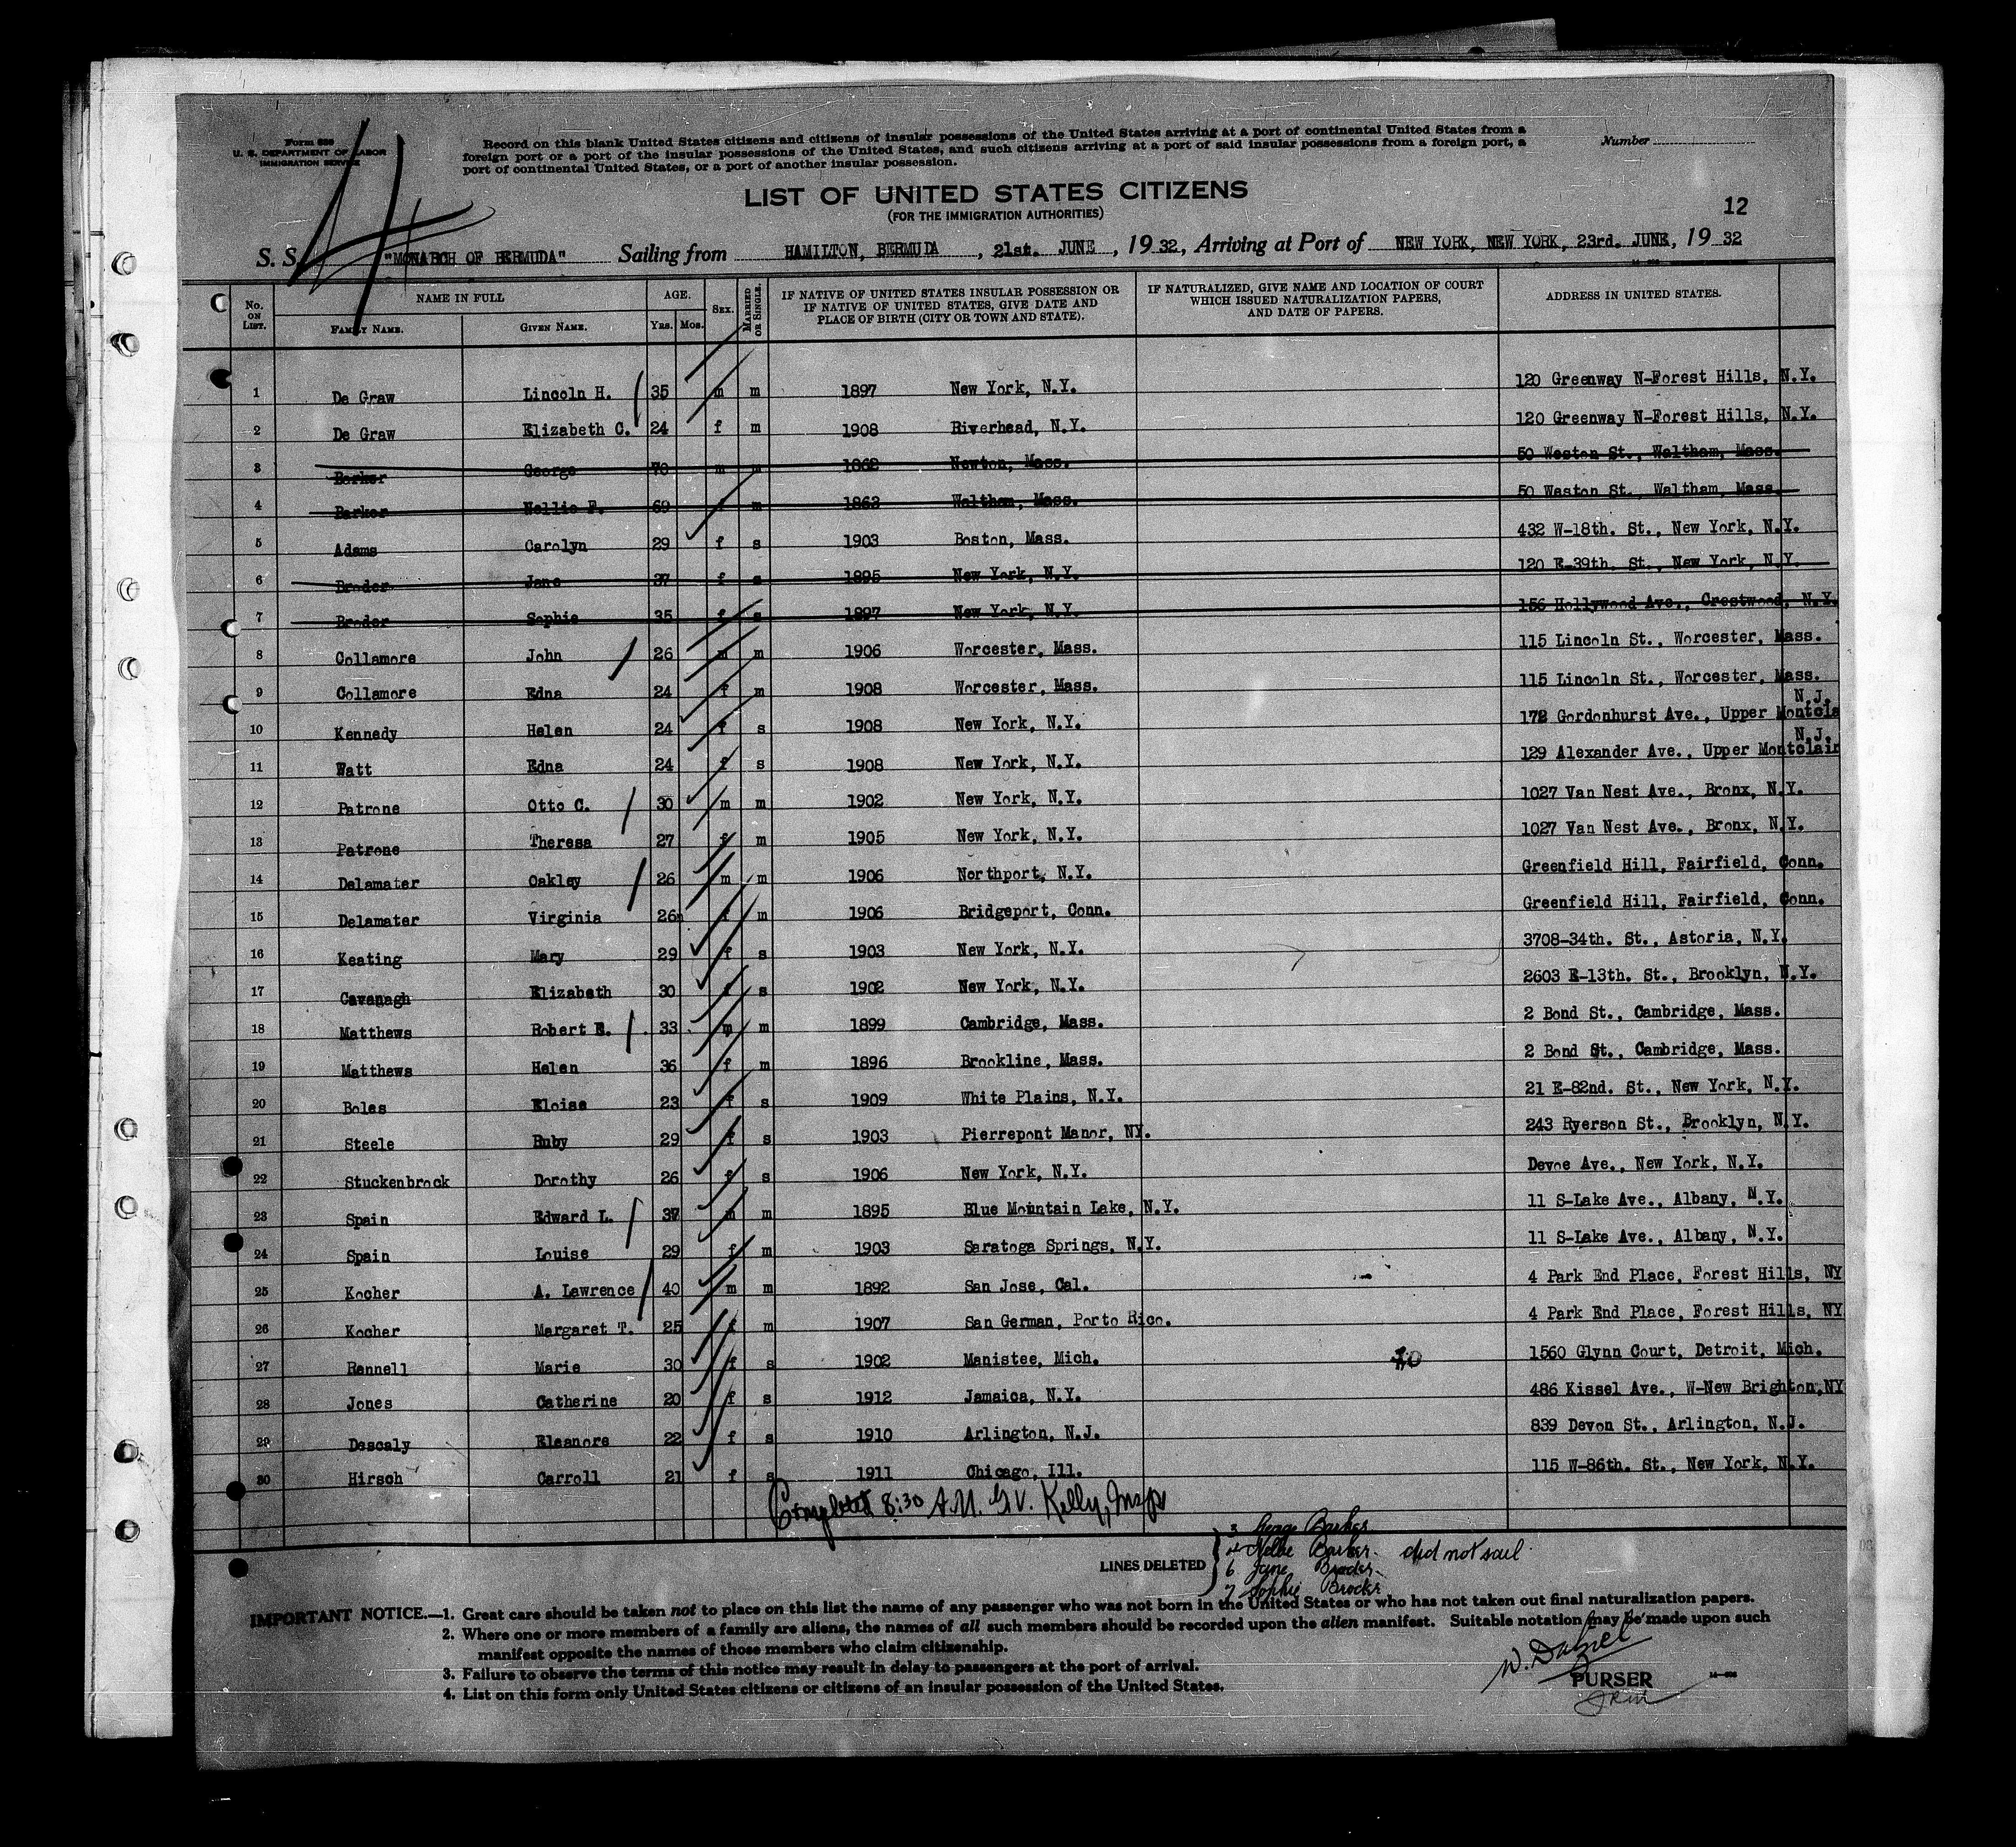 Form 630
U. S. DEPARTMENT OF LABOR
IMMIGRATION SERVICE
Record on this blank United States citizens and citizens of insular possessions of the United States arriving at a port of continental United States from a
foreign port or a port of the insular possessions of the United States, and such citizens arriving at a port of said insular possessions from a foreign port, a
port of continental United States, or a port of another insular possession.
Number
LIST OF UNITED STATES CITIZENS
(FOR THE IMMIGRATION AUTHORITIES)
12
4
S. S. "MONARCH OF BERMUDA" Sailing from HAMILTON, BERMUDA, 21st. JUNE, 19 32, Arriving at Port of NEW YORK, NEW YORK, 23rd. JUNE, 19 32
No. ON LIST. NAME IN FULL FAMILY NAME. GIVEN NAME. AGE. YRS. MOS. SEX. MARRIED OR SINGLE. IF NATIVE OF UNITED STATES INSULAR POSSESSION OR IF NATIVE OF UNITED STATES, GIVE DATE AND PLACE OF BIRTH (CITY OR TOWN AND STATE). IF NATURALIZED, GIVE NAME AND LOCATION OF COURT WHICH ISSUED NATURALIZATION PAPERS, AND DATE OF PAPERS. ADDRESS IN UNITED STATES.
1 De Graw Lincoln H. 35 m m 1897 New York, N.Y. 120 Greenway N-Forest Hills, N.Y.
2 De Graw Elizabeth C. 24 f m 1908 Riverhead, N.Y. 120 Greenway N-Forest Hills, N.Y.
3 Barker George 70 m m 1862 Newton, Mass. 50 Weston St., Waltham, Mass.
4 Barker Nellie F. 69 f m 1863 Waltham, Mass. 50 Weston St., Waltham, Mass.
5 Adams Carolyn 29 f s 1903 Boston, Mass. 432 W-18th. St., New York, N.Y.
6 Broder Jane 37 f s 1895 New York, N.Y. 120 E-39th. St., New York, N.Y.
7 Broder Sophie 35 f s 1897 New York, N.Y. 156 Hollywood Ave., Crestwood, N.Y.
8 Collamore John 26 m m 1906 Worcester, Mass. 115 Lincoln St., Worcester, Mass.
9 Collamore Edna 24 f m 1908 Worcester, Mass. 115 Lincoln St., Worcester, Mass.
10 Kennedy Helen 24 f s 1908 New York, N.Y. 172 Gordonhurst Ave., Upper Montcla N.J.
11 Watt Edna 24 f s 1908 New York, N.Y. 129 Alexander Ave., Upper Montclair N.J.
12 Patrone Otto C. 30 m m 1902 New York, N.Y. 1027 Van Nest Ave., Bronx, N.Y.
13 Patrone Theresa 27 f m 1905 New York, N.Y. 1027 Van Nest Ave., Bronx, N.Y.
14 Delamater Oakley 26 m m 1906 Northport, N.Y. Greenfield Hill, Fairfield, Conn.
15 Delamater Virginia 26 f m 1906 Bridgeport, Conn. Greenfield Hill, Fairfield, Conn.
16 Keating Mary 29 f s 1903 New York, N.Y. 3708-34th. St., Astoria, N.Y.
17 Cavanagh Elizabeth 30 f s 1902 New York, N.Y. 2603 E-13th. St., Brooklyn, N.Y.
18 Matthews Robert E. 33 m m 1899 Cambridge, Mass. 2 Bond St., Cambridge, Mass.
19 Matthews Helen 36 f m 1896 Brookline, Mass. 2 Bond St., Cambridge, Mass.
20 Boles Eloise 23 f s 1909 White Plains, N.Y. 21 E-82nd. St., New York, N.Y.
21 Steele Ruby 29 f s 1903 Pierrepont Manor, NY. 243 Ryerson St., Brooklyn, N.Y.
22 Stuckenbrock Dorothy 26 f s 1906 New York, N.Y. Devoe Ave., New York, N.Y.
23 Spain Edward L. 37 m m 1895 Blue Mountain Lake, N.Y. 11 S-Lake Ave., Albany, N.Y.
24 Spain Louise 29 f m 1903 Saratoga Springs, N.Y. 11 S-Lake Ave., Albany, N.Y.
25 Kocher A. Lawrence 40 m m 1892 San Jose, Cal. 4 Park End Place, Forest Hills, NY
26 Kocher Margaret T. 25 f m 1907 San German, Porto Rico. 4 Park End Place, Forest Hills, NY
27 Rennell Marie 30 f s 1902 Manistee, Mich. 1560 Glynn Court, Detroit, Mich.
28 Jones Catherine 20 f s 1912 Jamaica, N.Y. 486 Kissel Ave., W-New Brighton,NY
29 Descaly Eleanore 22 f s 1910 Arlington, N.J. 839 Devon St., Arlington, N.J.
30 Hirsch Carroll 21 f s 1911 Chicago, Ill. 115 W-86th. St., New York, N.Y.
Completed 8:30 A.M. G V. Kelly, Insp
LINES DELETED
3 George Barker
4 Nellie Barker did not sail
6 Jane Broder
7 Sophie Broder
IMPORTANT NOTICE.—1. Great care should be taken not to place on this list the name of any passenger who was not born in the United States or who has not taken out final naturalization papers.
2. Where one or more members of a family are aliens, the names of all such members should be recorded upon the alien manifest. Suitable notation may be made upon such
manifest opposite the names of those members who claim citizenship.
3. Failure to observe the terms of this notice may result in delay to passengers at the port of arrival.
4. List on this form only United States citizens or citizens of an insular possession of the United States.
PURSER